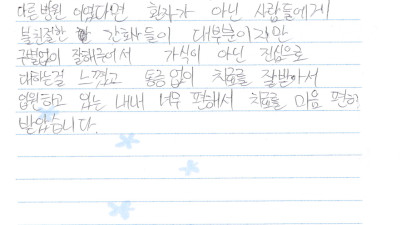 다른병원 이였다면 환자가 아닌 사람들에게
불친절한 간호사들이 대부분이지만
구별없이 잘해주셔서 가식이 아닌 진심으로
대하는걸 느꼈고 통증없이 치료를 잘받아서
입원하고 있는 내내 너무 편해서 치료를 마음 편히
받았습니다.